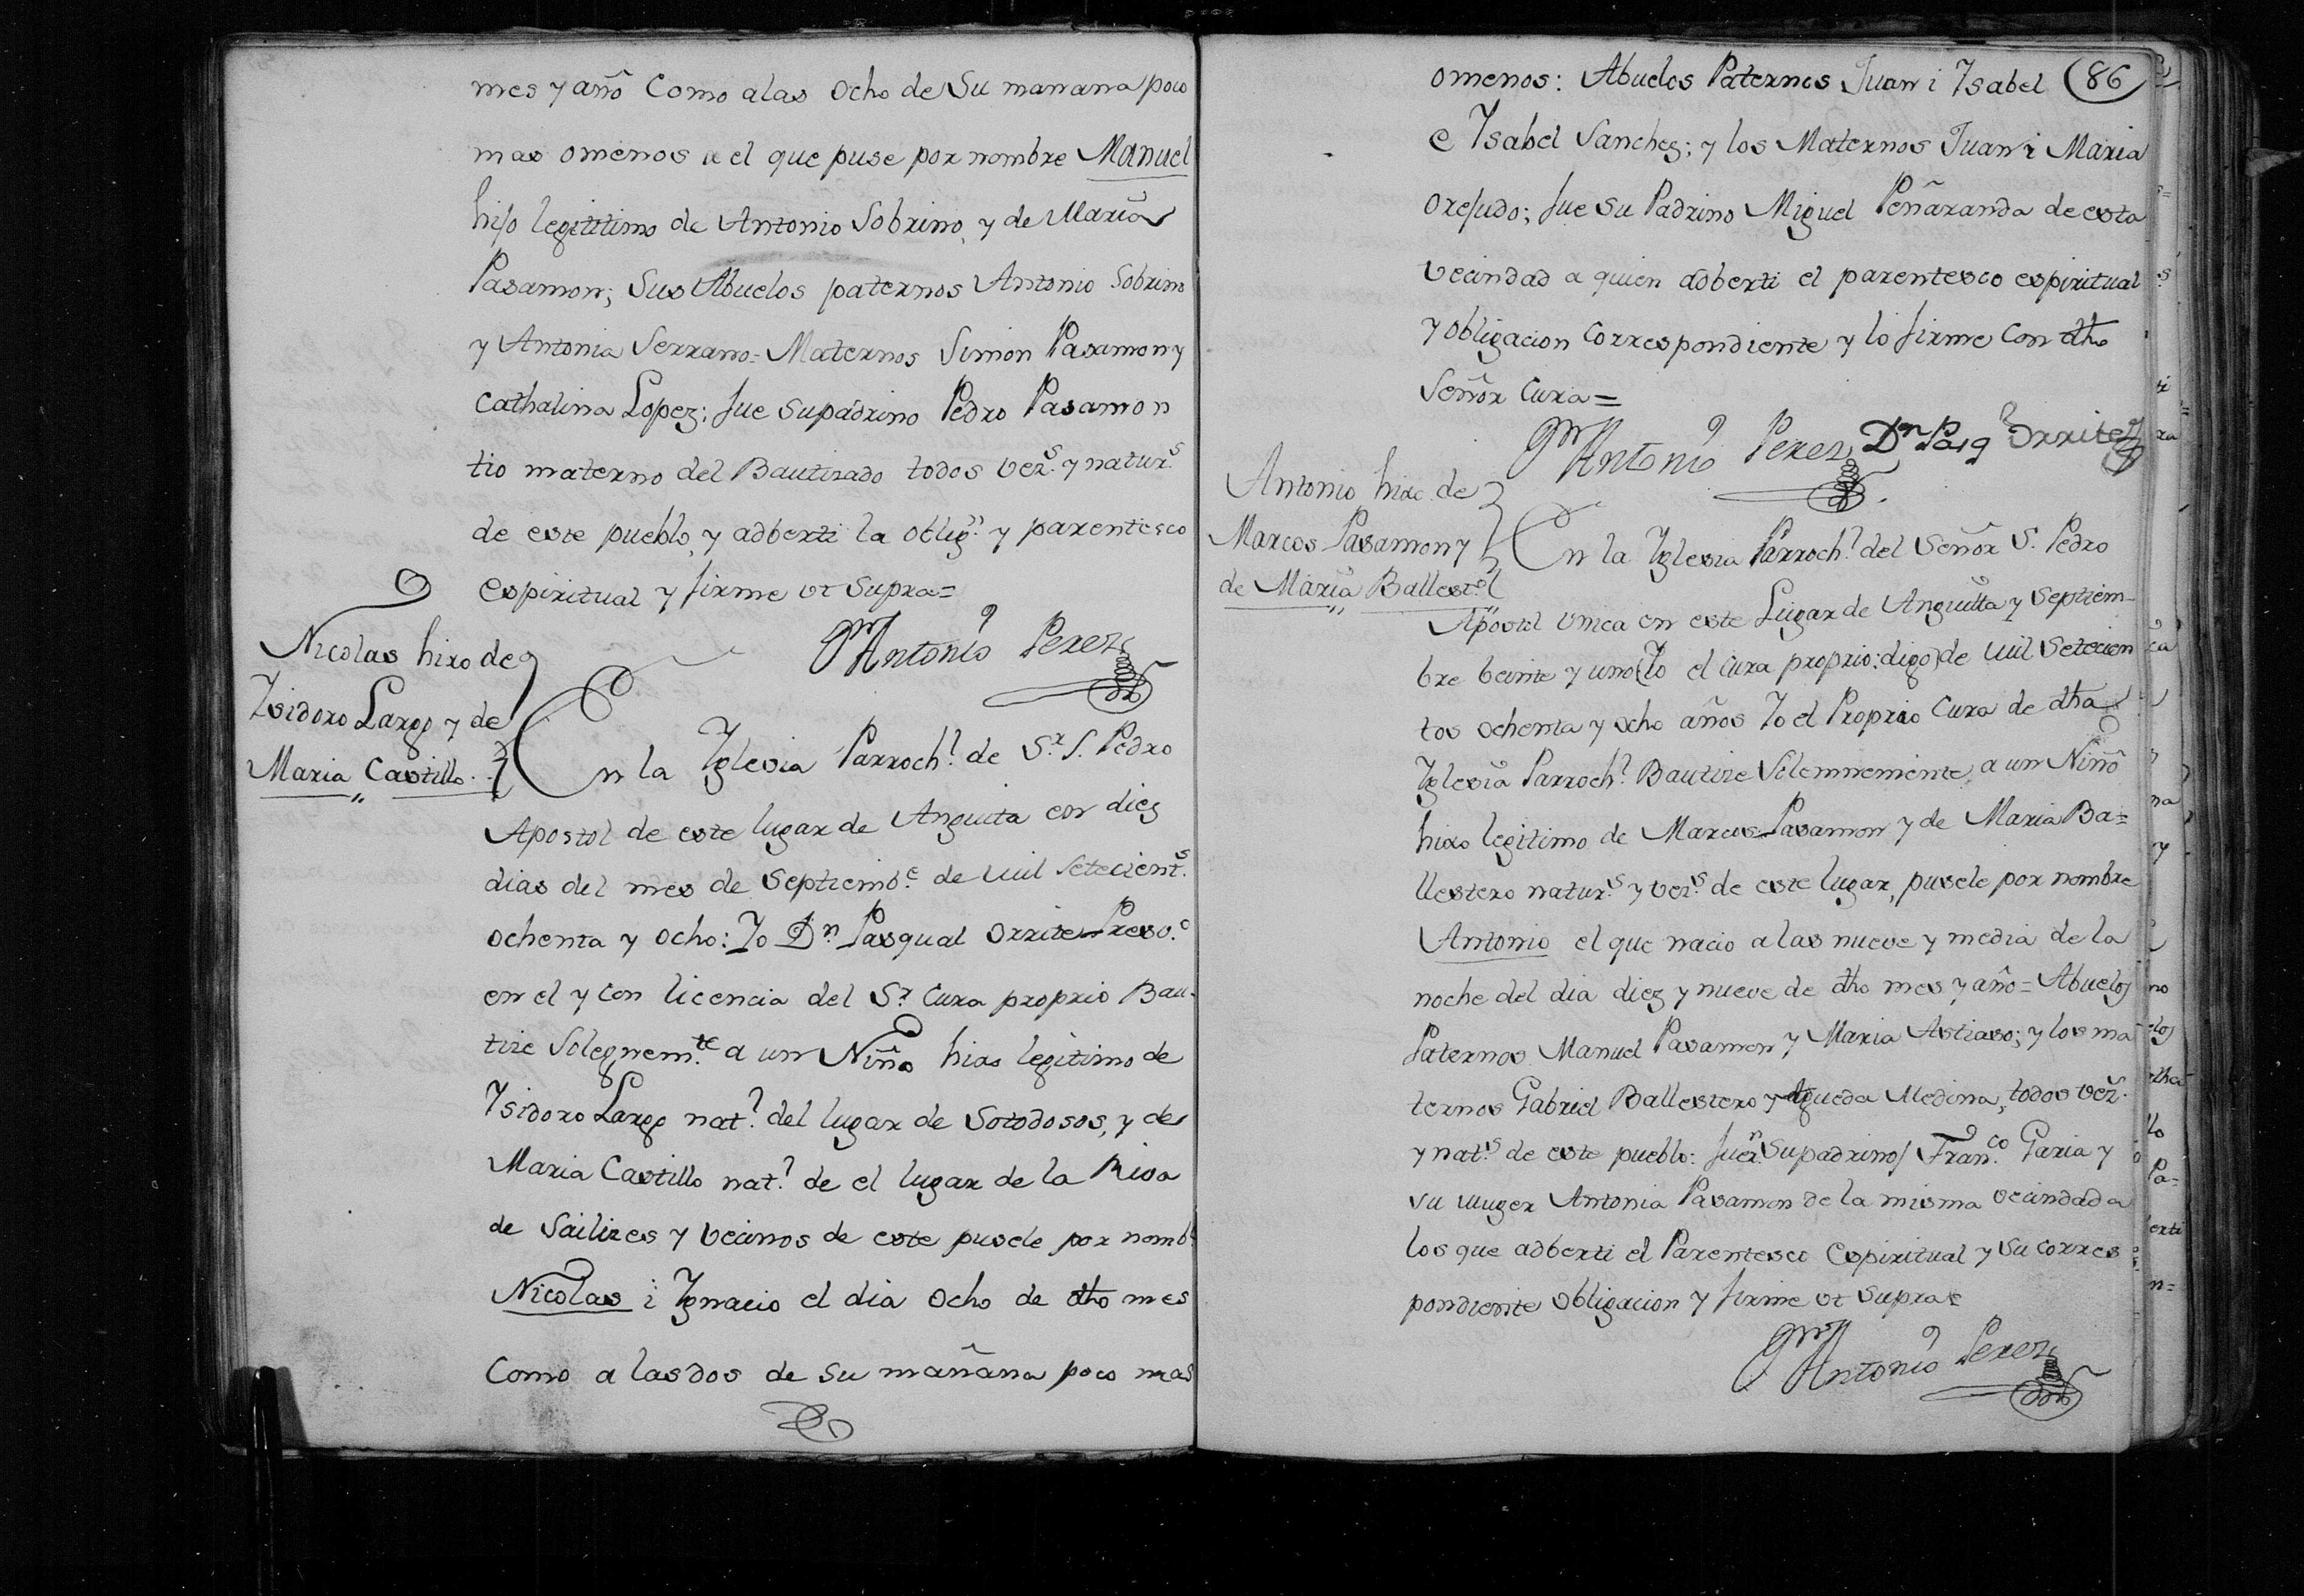 mes y año Como alas Ocho de Su manana poco
mas omenos a el que puse por nombre Manuel
hijo legititimo de Antonio Sobrino, y de Maria
Pasamon; Sus Abuelos paternos Antonio Sobrino
y Antonia Serrano = Maternos Simon Pasamon y
Cathalina Lopez; fue Supadrino Pedro Pasamon
tio materno del Bautizado todos vez.s y natur.s
de este pueblo, y adberti la oblig.n y parentesco
espiritual y firme ut Supra =
Antonio Perez
Nicolas hixo de
Isidoro Largo y de
Maria Castillo
En la Yglesia Parroch.l de S.r S. Pedro
Apostol de este lugar de Anguita en diez
dias del mes de Septiemb.e de Mil Setecient.s
ochenta y ocho: Yo D.n Pasqual Orrite Presv.o
en el y con licencia del S.r Cura proprio Bau-
tize Solegnem.te a un Niño hixo legitimo de
Ysidoro Largo nat.l del lugar de Sotodosos, y de
Maria Castillo nat.l de el lugar de la Riva
de Sailizes y vecinos de este pusele por nomb.e
Nicolas i Ygnacio el dia Ocho de dho mes
Como a las dos de su mañana poco mas
86
omenos: Abuelos Paternos Juan i Ysabel
e Ysabel Sanchez; y los Maternos Juan i Maria
Orejudo; fue su Padrino Miguel Peñaranda de esta
vecindad a quien adberti el parentesco espiritual
y obligacion Correspondiente y lo firme Con dho
Señor Cura =
Antonio Perez D.n Pasq.l Orrite
Antonio hixo de
Marcos Pasamon y
de Maria Ballest.o
En la Yglesia Parroch.l del Señor S. Pedro
Apostol Vnica en este Lugar de Anguita y Septiem-
bre beinte y uno (Yo el Cura proprio: digo) de Mil Setecien
tos ochenta y ocho años Yo el Proprio Cura de dha
Yglesia Parroch.l Bautize Solemnemente, a un Niño
hixo legitimo de Marcos Pasamon y de Maria Ba=
llestero natur.s y vez.s de este lugar, pusele por nombre
Antonio el que nacio a las nueve y media de la
noche del dia diez y nueve de dho mes y año = Abuelos
Paternos Manuel Pasamon y Maria Astiaso; y los ma
ternos Gabriel Ballestero y Agueda Medina, todos vez.s
y nat.s de este pueblo: fuer.n Supadrinos Fran.co Garia y
su Muger Antonia Pasamon de la misma vecindad a
los que adberti el Parentesco Espiritual y su corres
pondiente obligacion y firme ut supra =
Antonio Perez